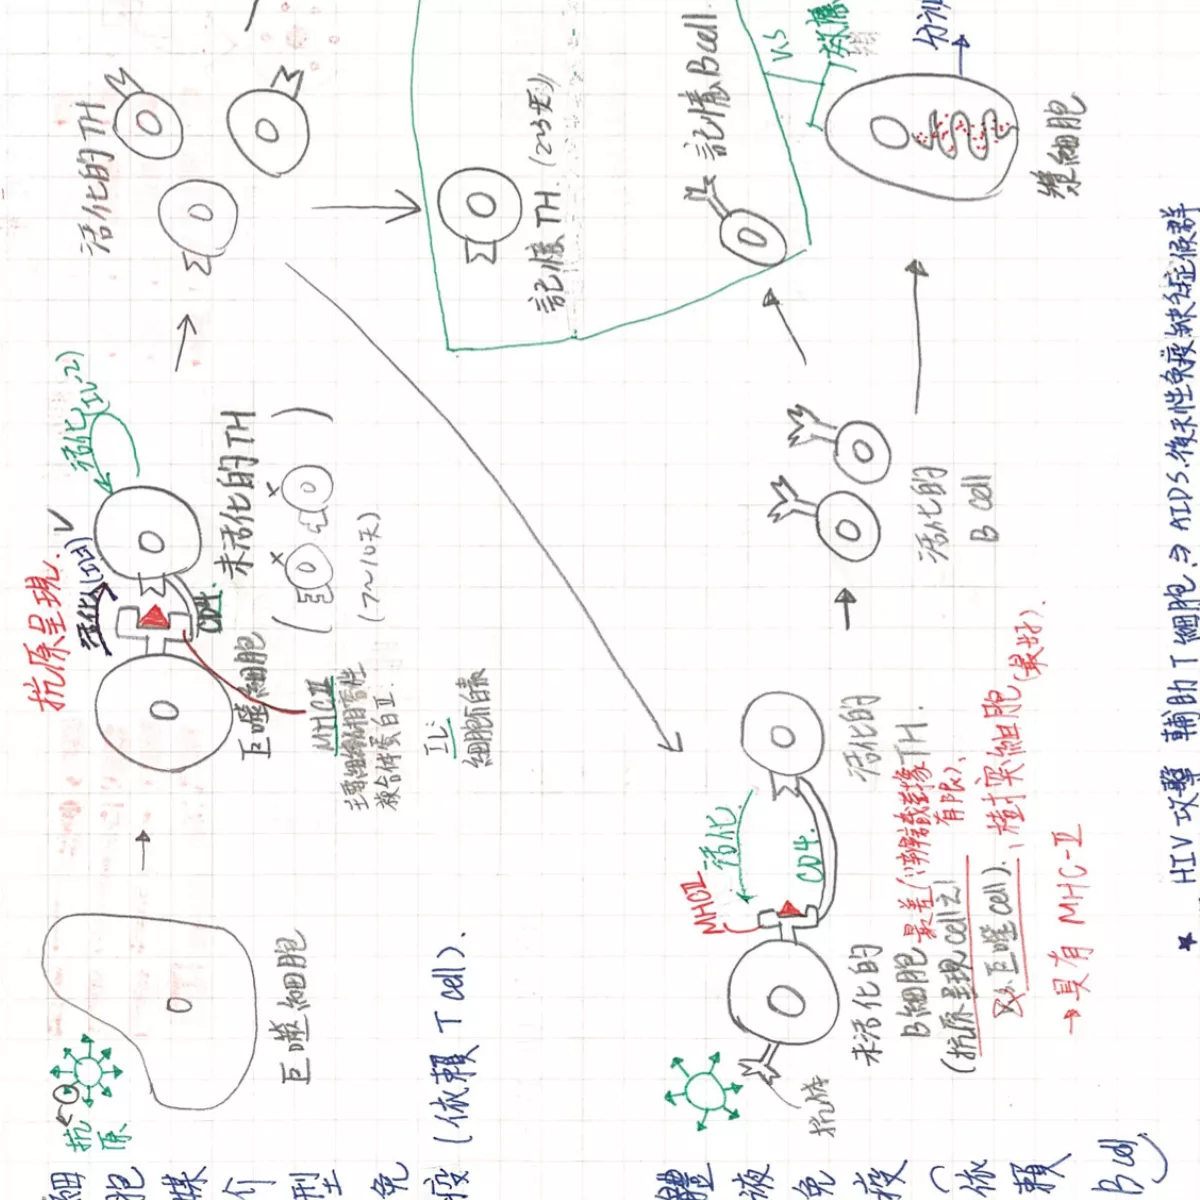 細胞媒介型免疫(依賴 T cell).
抗原
巨噬細胞
抗原呈現.
活化(IL1)
活化(IL-2)
CD4.
巨噬細胞
未活化的TH
(7~10天)
MHCⅡ
主要組織相容性
複合體蛋白Ⅱ.
IL:
細胞介白素
活化的TH
記憶TH. (2~3天)
記憶Bcell.
V.S
效應
分泌
漿細胞
體液免疫(依賴 B cell)
抗體
MHCⅡ
活化
CD4.
未活化的
B細胞 最差(辨識對象有限)、
(抗原呈現cell之1
又分巨噬cell). 、樹突細胞(最好).
→具有 MHC-Ⅱ
活化的
TH.
活化的
B cell
★ HIV 攻擊 輔助T細胞 ⇒ AIDS.後天性免疫缺乏症候群